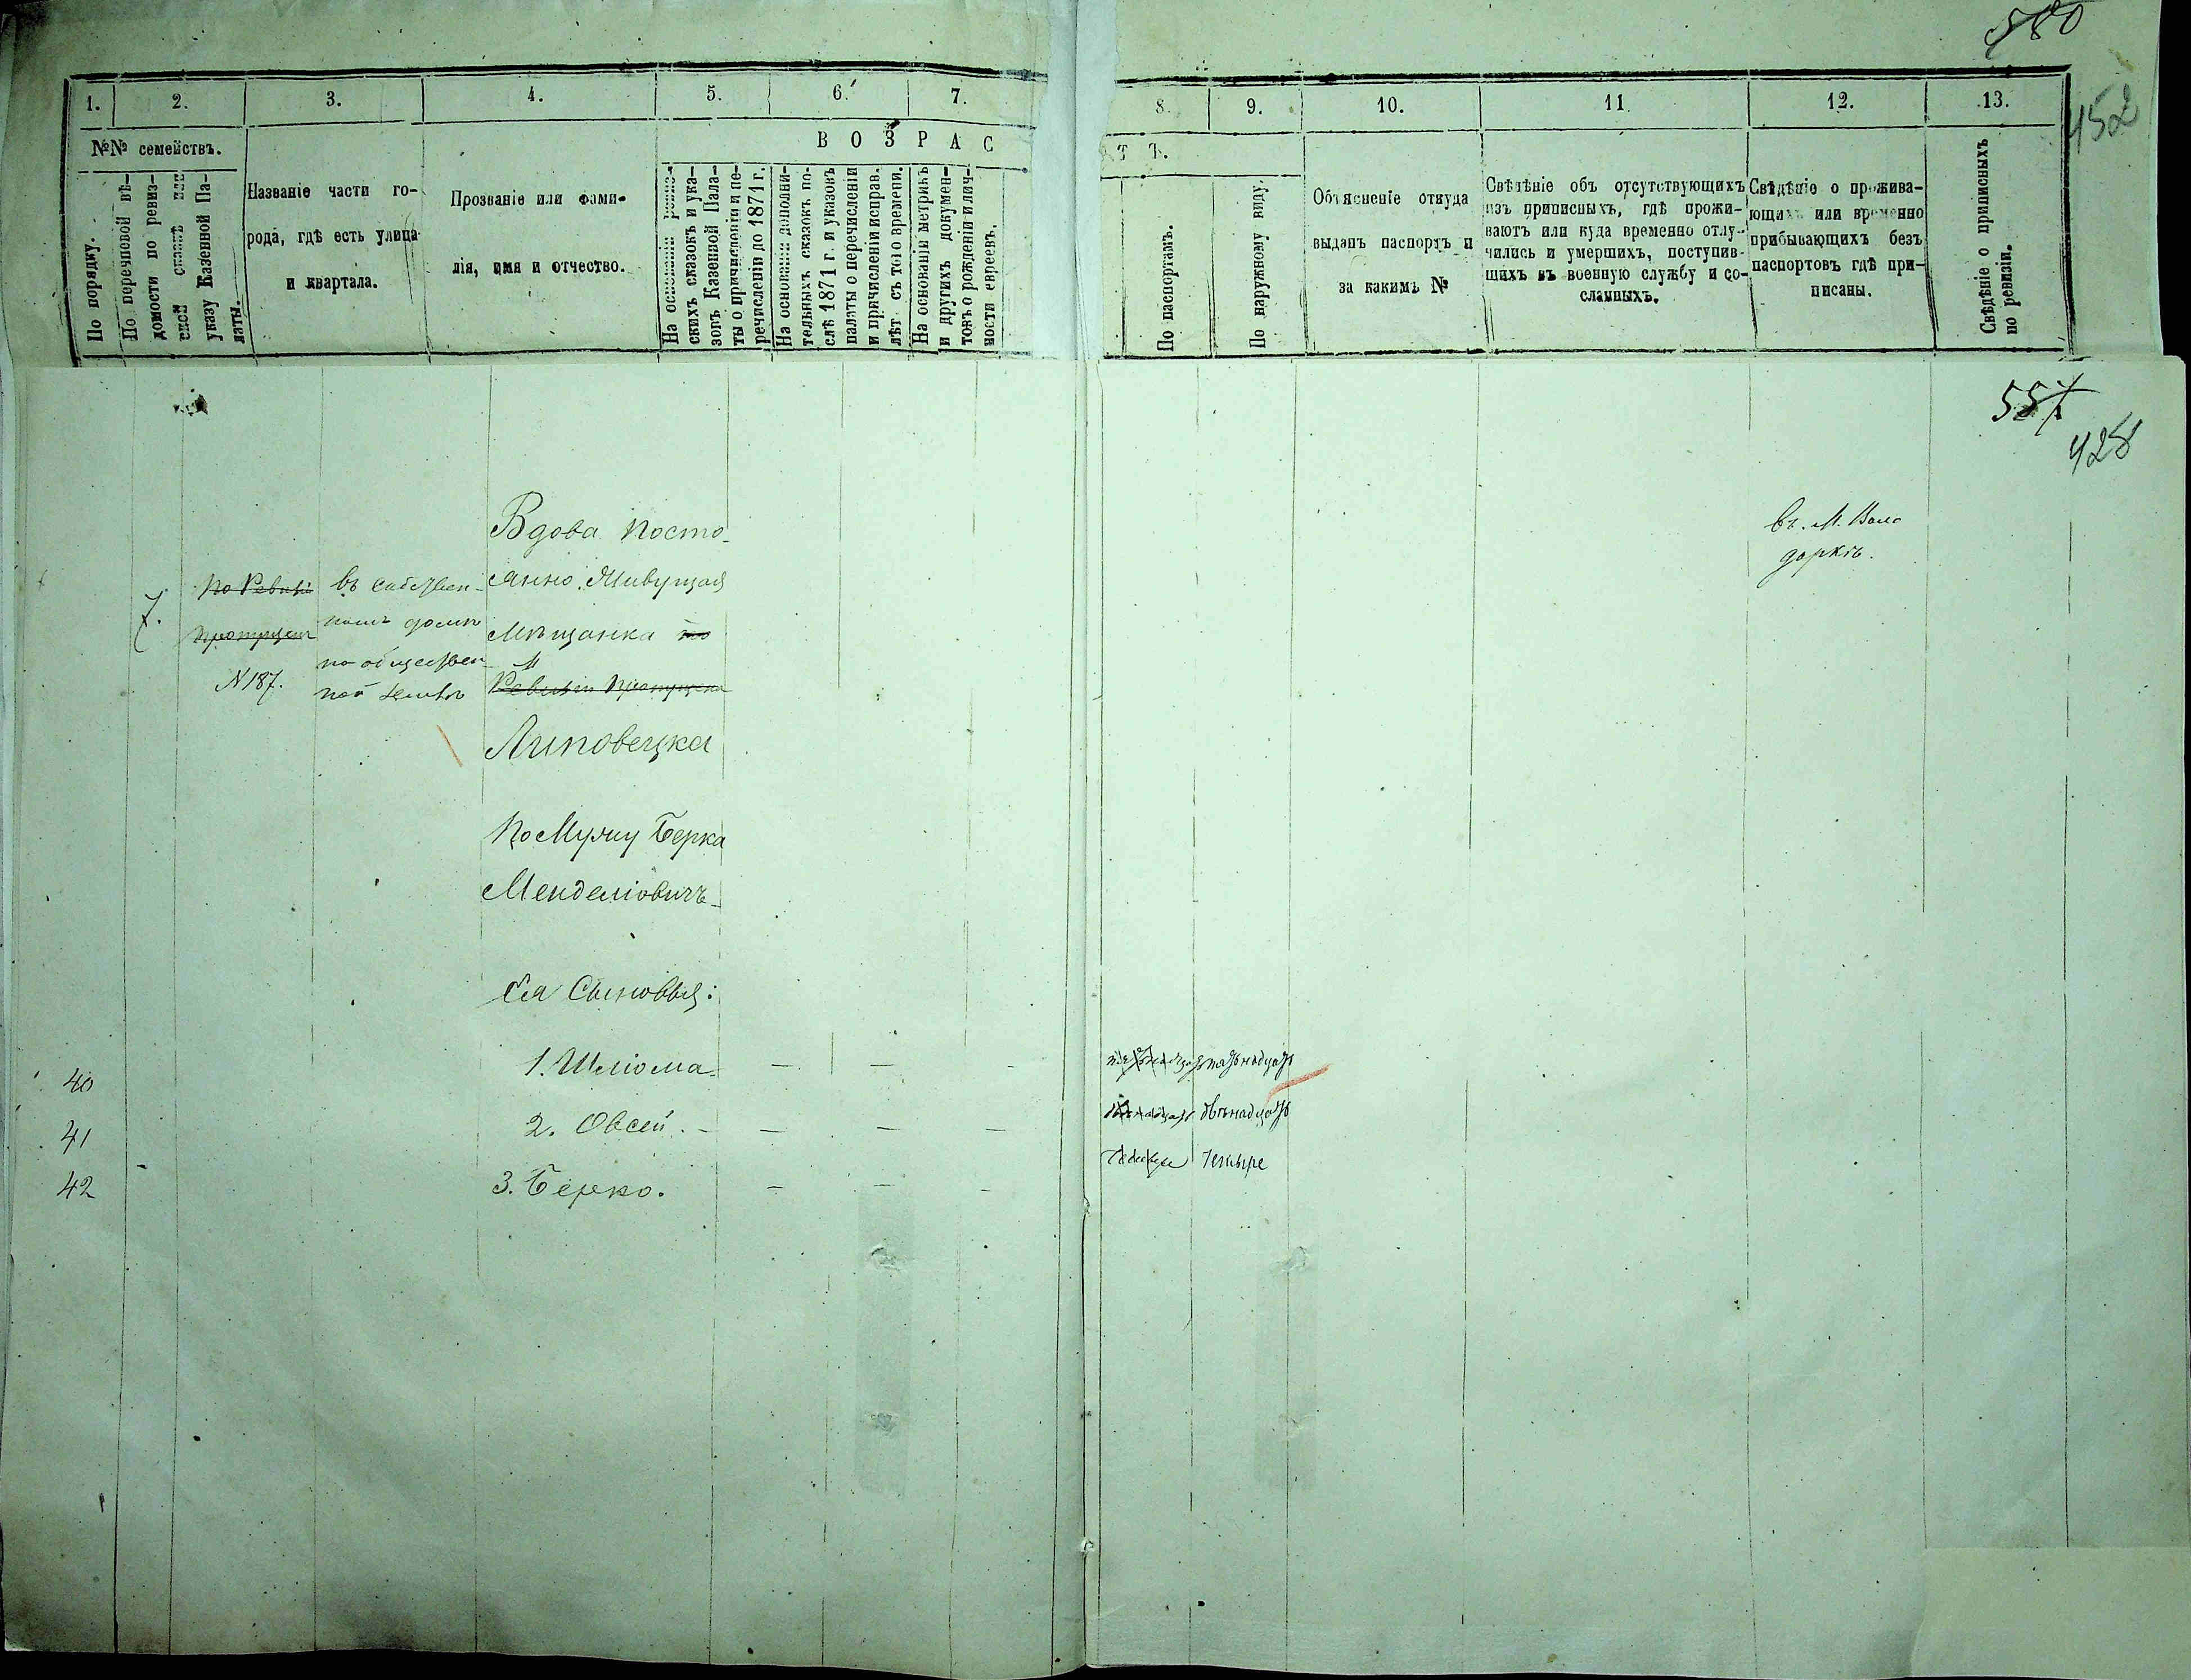 580
452
1. 2. 3. 4. 5. 6. 7. 8. 9. 10. 11. 12. 13.
№№ семействъ.
По порядку.
По перечневой вѣ-
домости по ревиз-
ской сказкѣ или
указу Казенной Па-
латы.
Названіе части го-
рода, гдѣ есть улица
и квартала.
Прозваніе или фами-
лія, имя и отчество.
ВОЗРАСТЪ.
На основаніи ревиз-
скихъ сказокъ и ука-
зовъ Казенной Пала-
ты о причисленіи и пе-
речисленіи до 1871 г.
На основаніи дополни-
тельныхъ сказокъ по-
слѣ 1871 г. и указовъ
палаты о перечисленіи
и причисленіи исправ.
лѣт съ того времени.
На основаніи метрикъ
и другихъ докумен-
товъ о рожденіи и лич-
ности евреевъ.
По паспортамъ.
По наружному виду.
Объясненіе откуда
выданъ паспортъ и
за какимъ №
Свѣдѣніе объ отсутствующихъ
изъ приписныхъ, гдѣ прожи-
ваютъ или куда временно отлу-
чились и умершихъ, поступив-
шихъ въ военную службу и со-
сланныхъ.
Свѣдѣніе о прожива-
ющихъ или временно
прибывающихъ безъ
паспортовъ гдѣ при-
писаны.
Свѣдѣніе о приписныхъ
по ревизіи.
557
428
7.
По Ревизіи
Пропущен
№ 187.
въ собствен-
номъ домѣ
по обществен
ной землѣ
Вдова посто-
янно Живущая
Мѣщанка по
Ревизіи Пропущена
Липовецка
По Мужу Берка
Менделіовичъ
Ея Сыновья:
въ. М. Воло
даркѣ.
40 1. Шліома - - - пятьнадцать
41 2. Овсей. - - - - двѣнадцать
42 3. Берко. - - - четыре